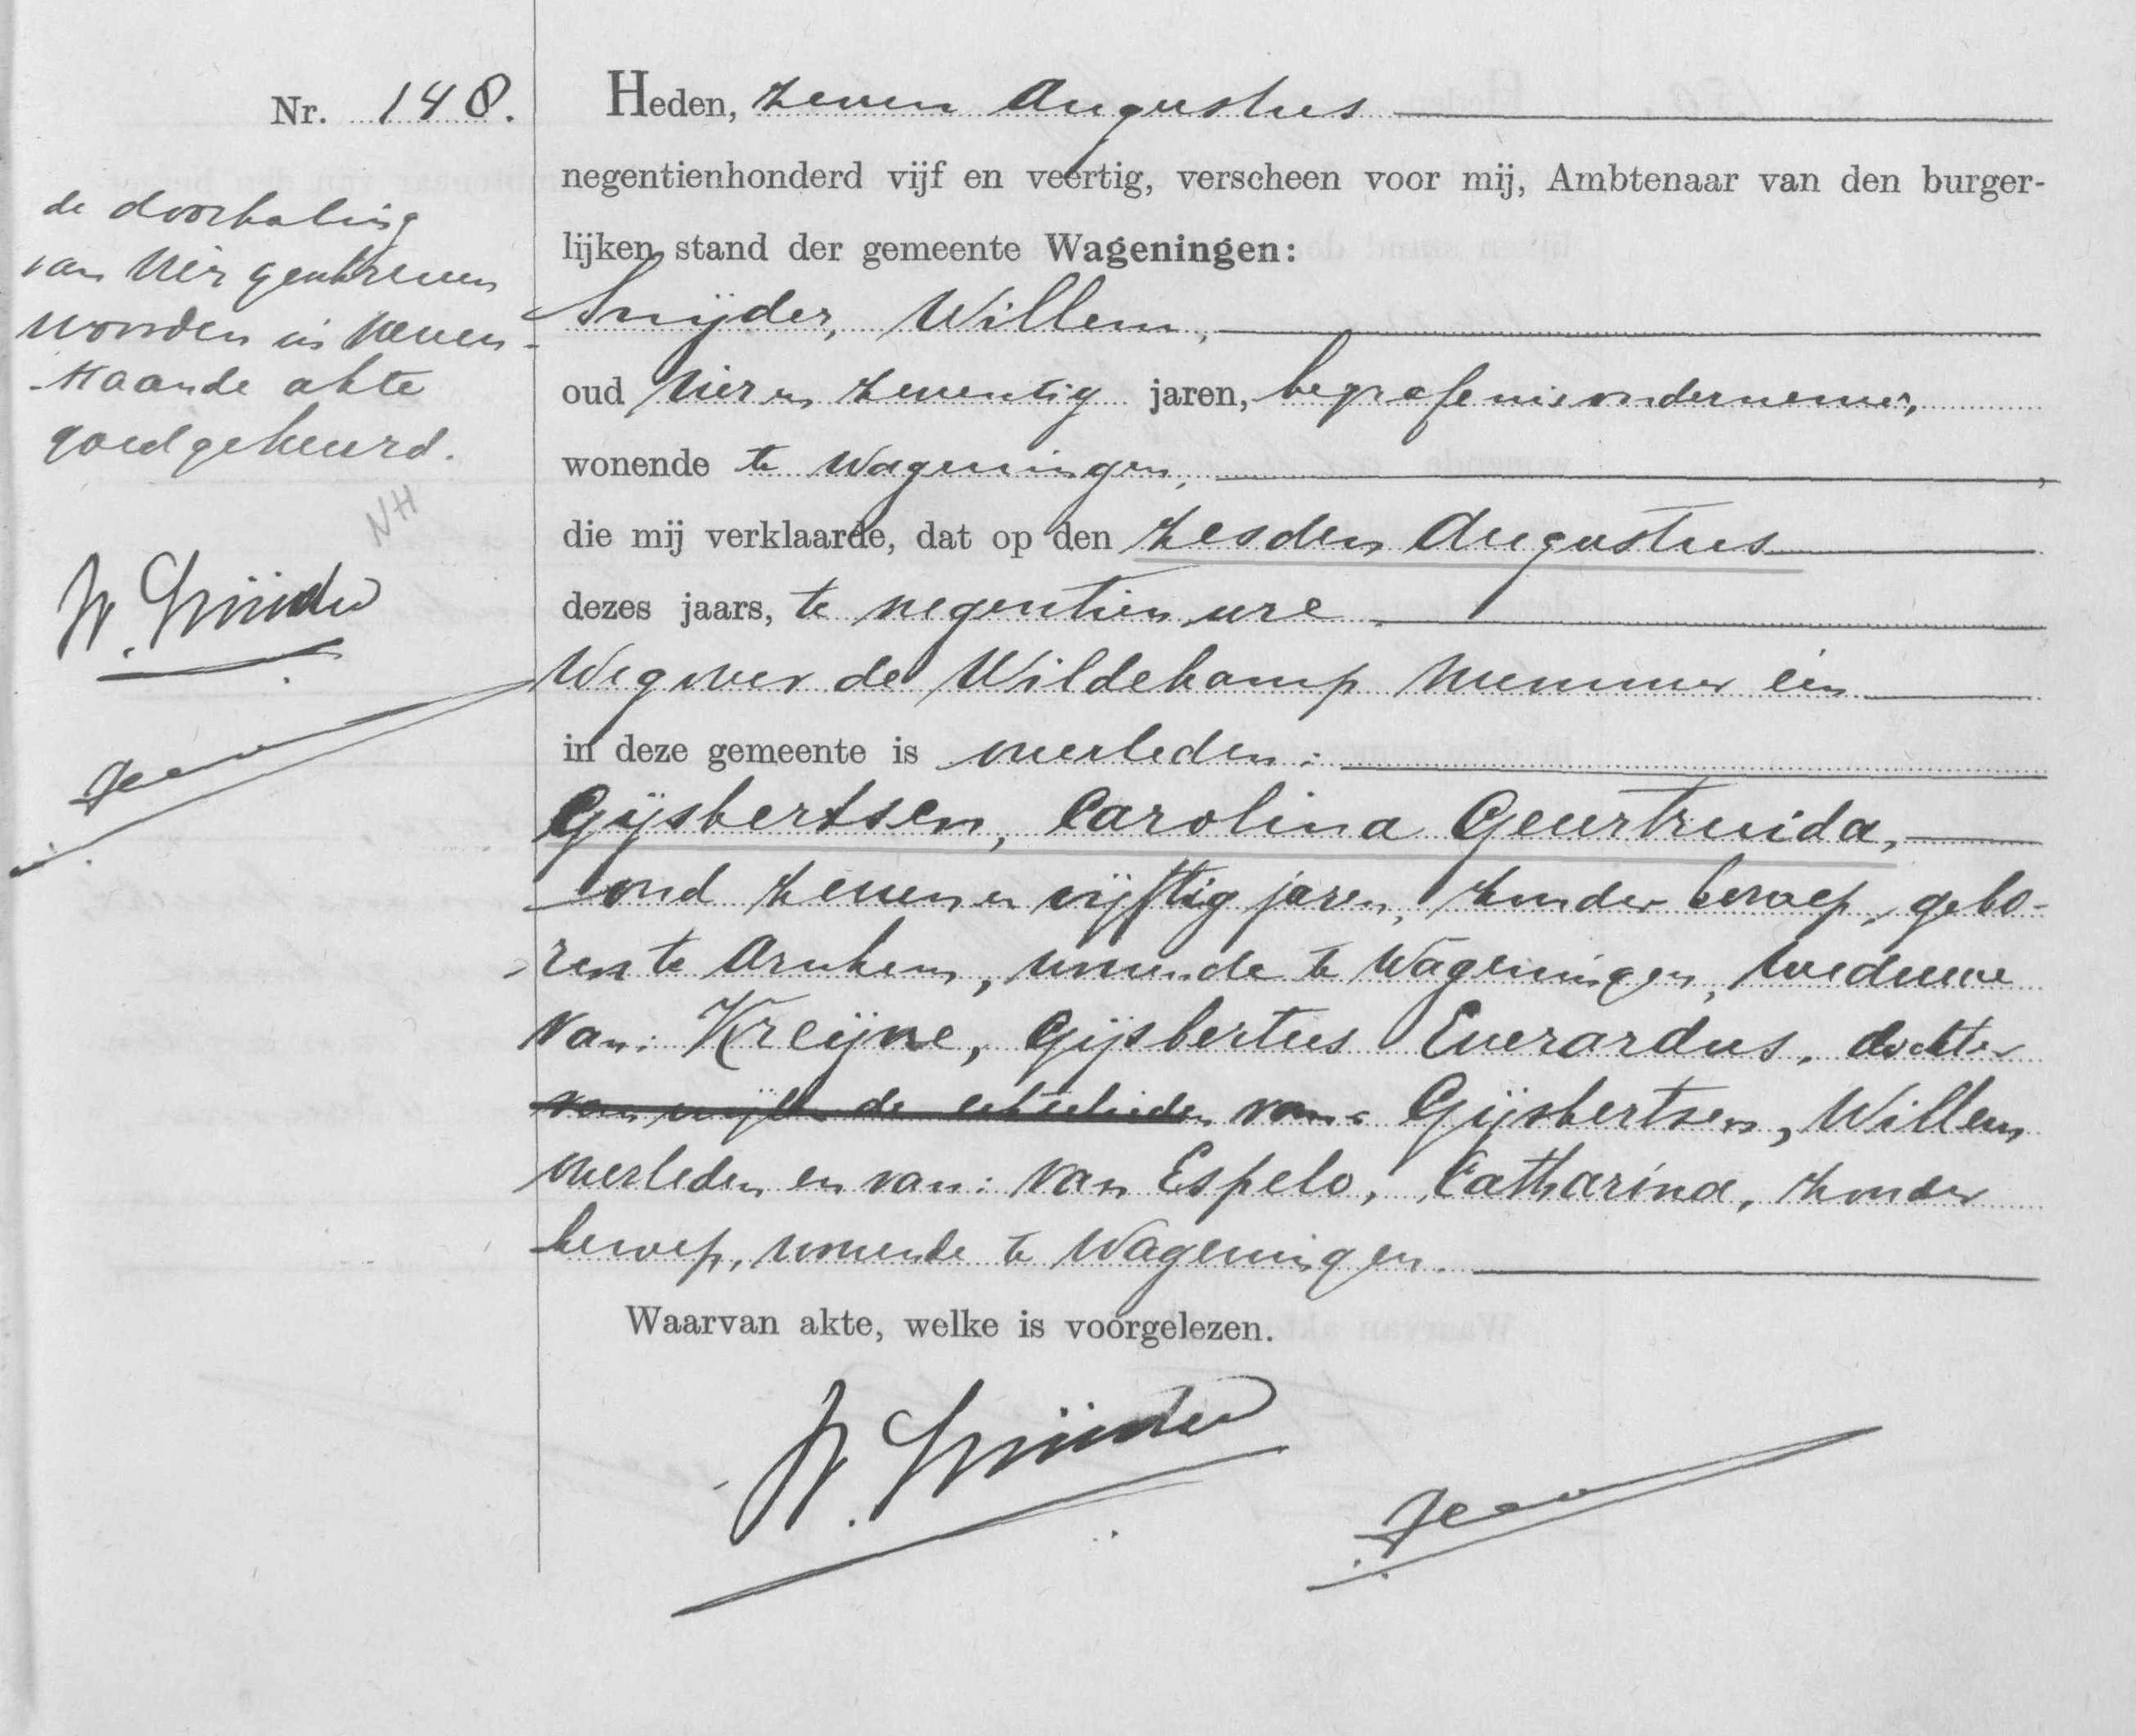 Nr. 148.
de doorhaling
van vier geschreven
woorden in neven-
staande akte
goedgekeurd.
NH
W. Snijder
Heden, zeven Augustus
negentienhonderd vijf en veertig, verscheen voor mij, Ambtenaar van den burger-
lijken stand der gemeente Wageningen:
Snijder, Willem,
oud vier en zeventig jaren, begrafenisondernemer,
wonende te Wageningen,
die mij verklaarde, dat op den zesden Augustus
dezes jaars, te negentien ure
Weg over de Wildekamp nummer één
in deze gemeente is overleden:
Gijsbertsen, Carolina Geurtruida,
oud zeven en vijftig jaren, zonder beroep, gebo-
ren te Arnhem, wonende te Wageningen, weduwe
van: Kreijne, Gijsbertus Everardus, dochter
van wijlen de echtelieden van: Gijsbertsen, Willem
overleden en van: van Espelo, Catharina, zonder
beroep, wonende te Wageningen.
Waarvan akte, welke is voorgelezen.
W. Snijder